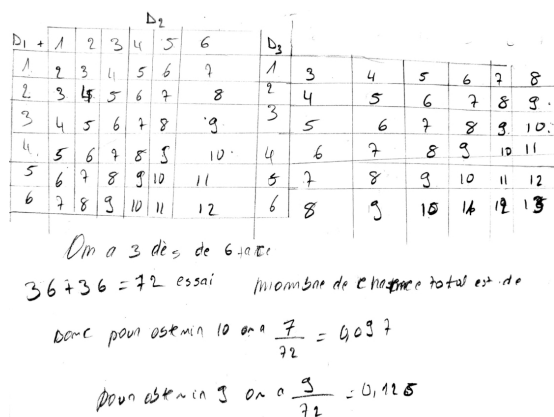 D2
D1 + 1 2 3 4 5 6 D3
1 2 3 4 5 6 7 1 3 4 5 6 7 8
2 3 4 5 6 7 8 2 4 5 6 7 8 9
3 4 5 6 7 8 9 3 5 6 7 8 9 10
4 5 6 7 8 9 10 4 6 7 8 9 10 11
5 6 7 8 9 10 11 5 7 8 9 10 11 12
6 7 8 9 10 11 12 6 8 9 10 11 12 13
On a 3 dès de 6 face
36+36 = 72 essai nombre de chance total est de
Donc pour obtenir 10 on a 7/72 = 0,097
pour obtenir 9 on a 9/72 = 0,125